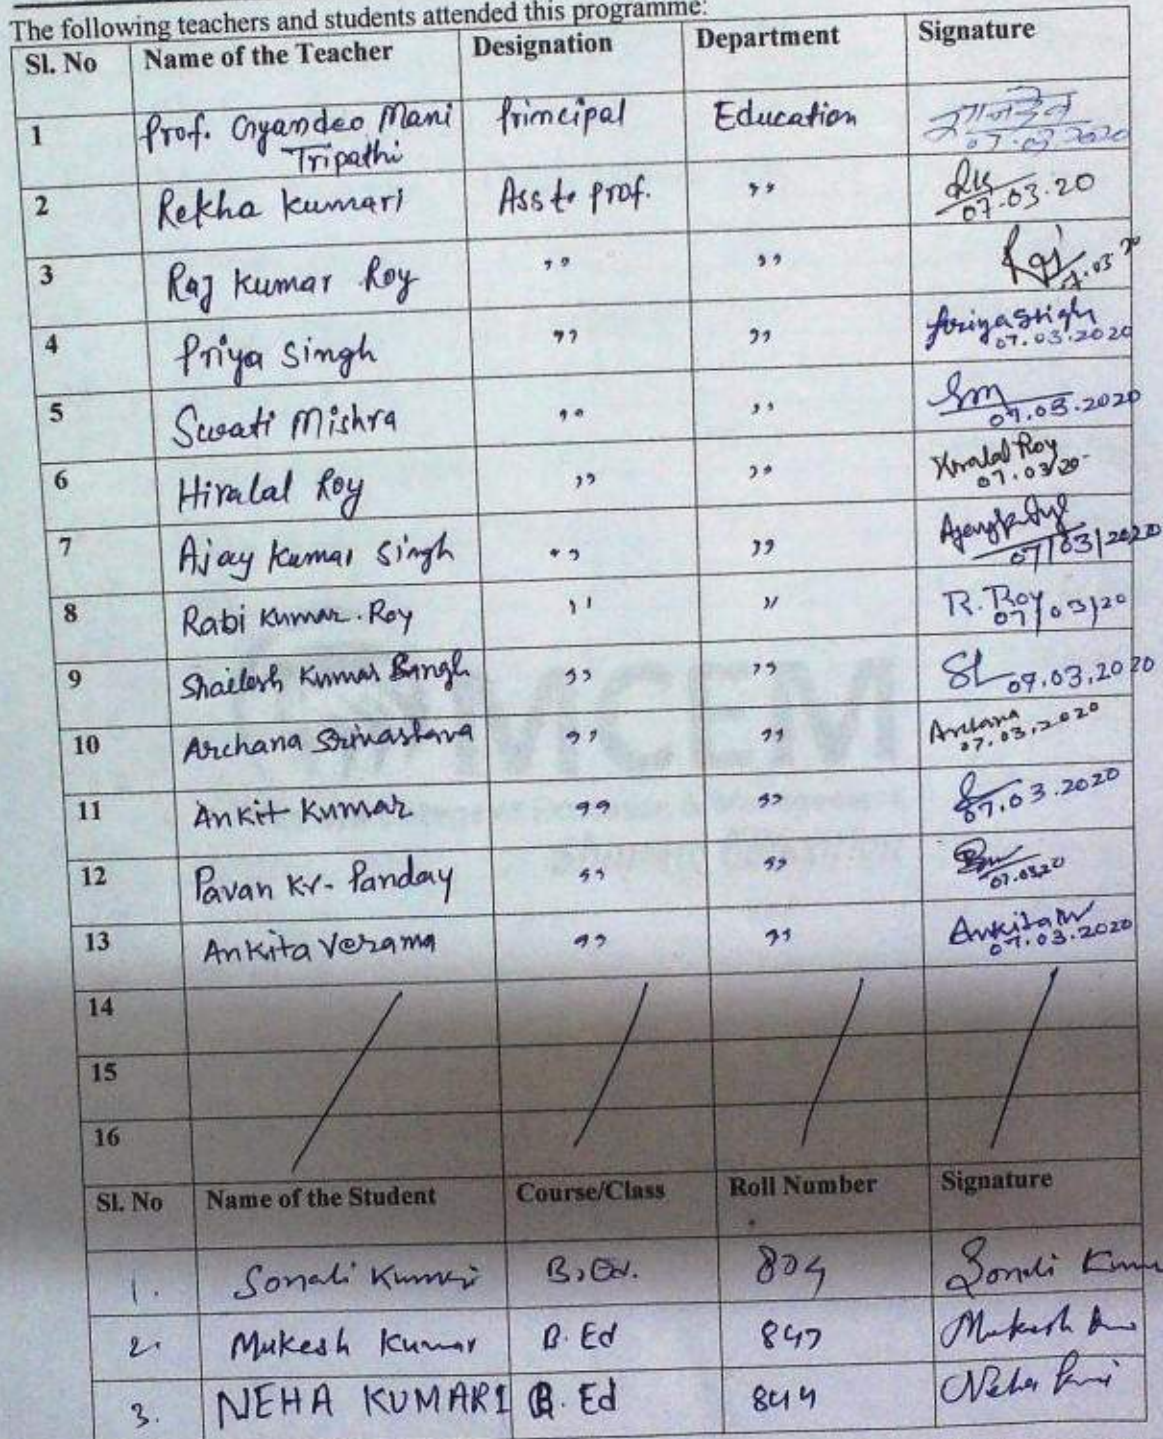 The following teachers and students attended this programme:
Sl. No Name of the Teacher Designation Department Signature
1 Prof. Gyandeo Mani Tripathi Principal Education ज्ञानदेव 07.03.2020
2 Rekha Kumari Asst. Prof. ,, RK 07.03.20
3 Raj Kumar Roy ,, ,, Raj 7.03.20
4 Priya Singh ,, ,, Priya Singh 07.03.2020
5 Swati Mishra ,, ,, Sm 07.03.2020
6 Hiralal Roy ,, ,, Hiralal Roy 07.03/20
7 Ajay Kumar Singh ,, ,, 07/03/2020
8 Rabi Kumar. Roy ,, ,, R. Roy 07/03/20
9 Shailesh Kumar Singh ,, ,, SL 07.03.2020
10 Archana Srivastava ,, ,, Archana 07.03.2020
11 Ankit Kumar ,, ,, 07.03.2020
12 Pavan Kr- Panday ,, ,, 07.0320
13 Ankita Verama ,, ,, Ankita 07.03.2020
14
15
16
Sl. No Name of the Student Course/Class Roll Number Signature
1. Sonali Kumari B.Ed. 804 Sonali
2. Mukesh Kumar B.Ed 847 Mukesh
3. NEHA KUMARI B.Ed 844 Neha